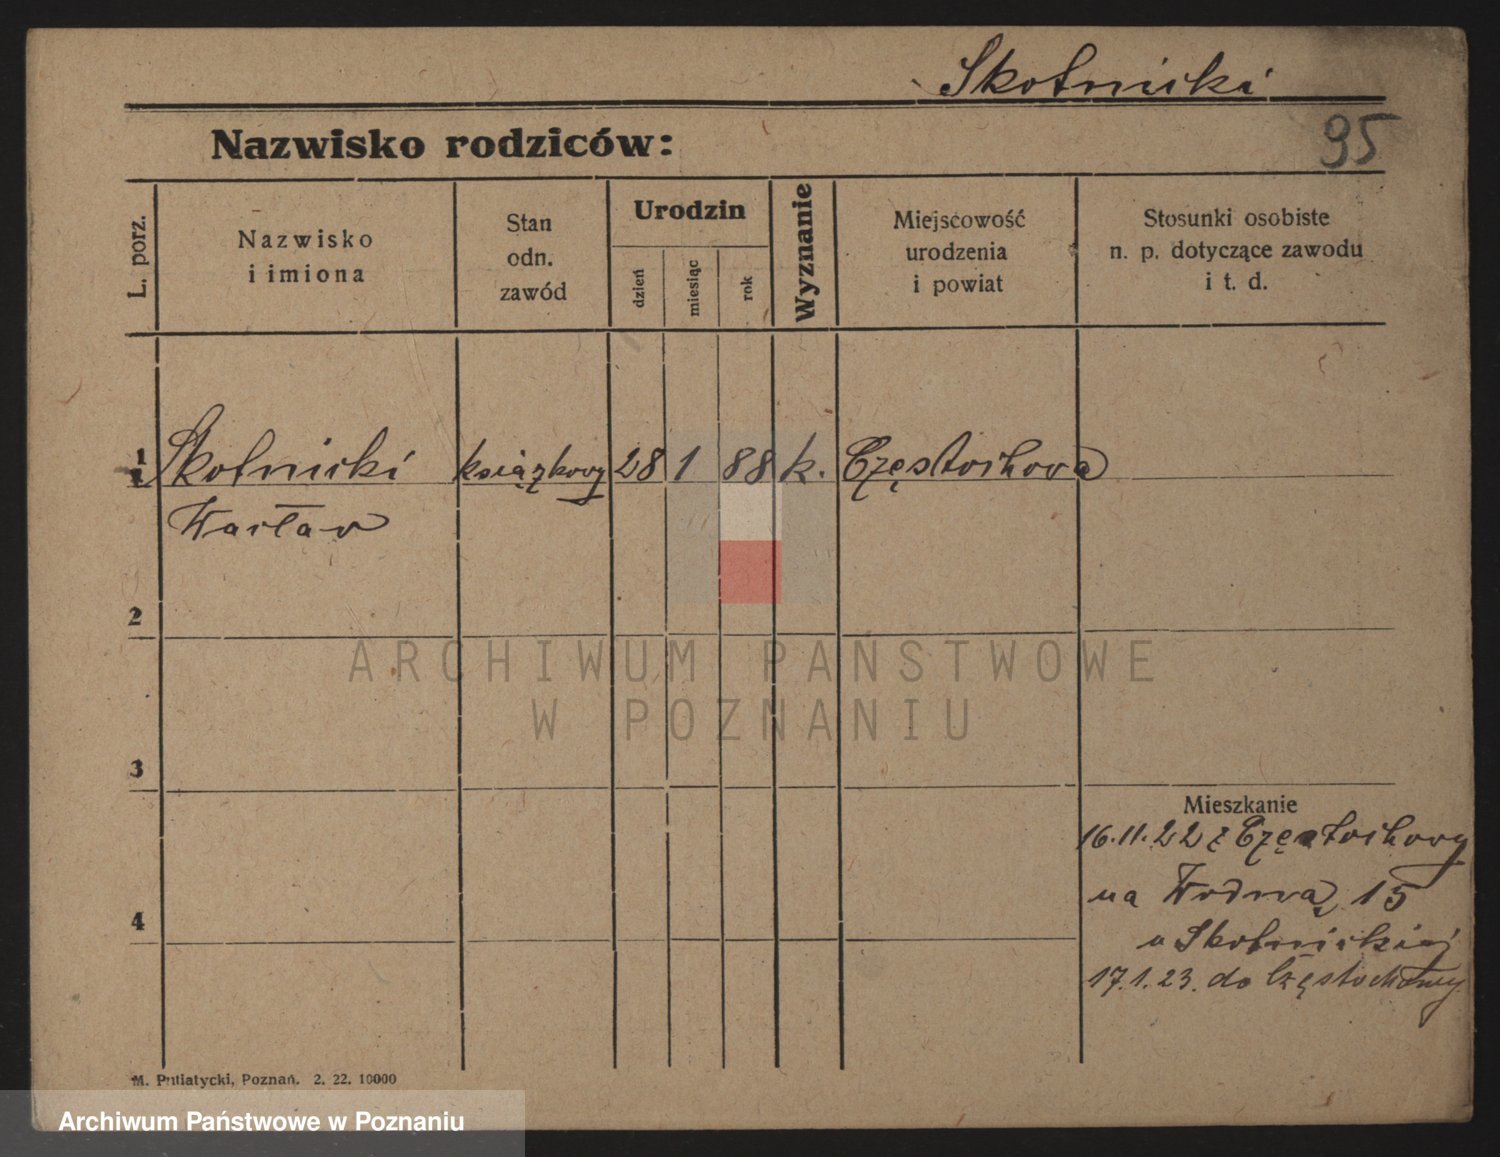 Skotnicki
Nazwisko rodziców:
95
L. porz.
Nazwisko
i imiona
Stan
odn.
zawód
Urodzin
dzień
miesiąc
rok
Wyznanie
Miejscowość
urodzenia
i powiat
Stosunki osobiste
n. p. dotyczące zawodu
i t. d.
1 Skotnicki książkowy 28 1 88 k. Częstochowa
Wacław
2
ARCHIWUM PAŃSTWOWE
W POZNANIU
3
Mieszkanie
16.11.22 z Częstochowy
na Wodną 15
u Skotnickiej
17.1.23. do Częstochowy
4
M. Putiatycki, Poznań. 2. 22. 10000
Archiwum Państwowe w Poznaniu